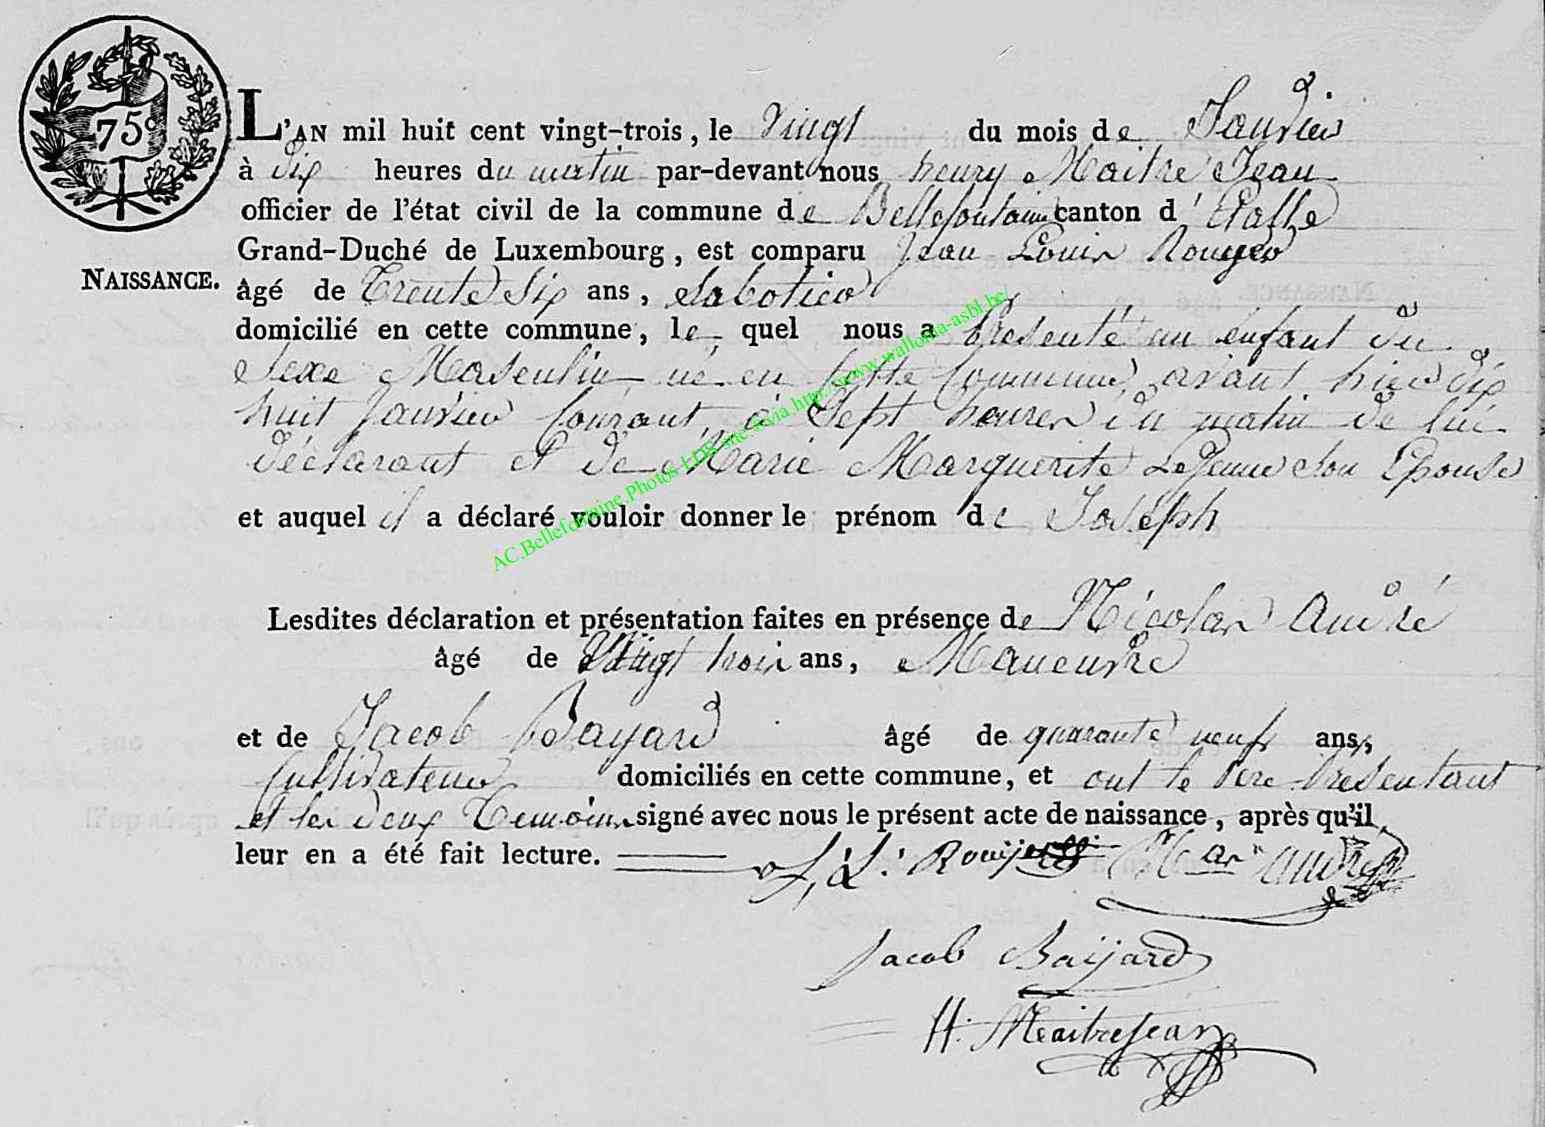 75c
L'AN mil huit cent vingt-trois, le vingt du mois de Janvier
à dix heures du matin par-devant nous henry Maitre Jean
officier de l'état civil de la commune de Bellefontaine canton d'Etalle
Grand-Duché de Luxembourg, est comparu Jean Louis Rouyer
NAISSANCE.
âgé de Trente Six ans, Sabotier
domicilié en cette commune, le quel nous a présenté un enfant du
Sexe Masculin né en cette Commune avant hier dix
huit Janvier Courant, à Sept heures du matin de lui
déclarant et de Marie Marguerite LeJeune Son Epouse
et auquel il a déclaré vouloir donner le prénom de Joseph
AC.Bellefontaine.Photos EDB mis via http://www.wallonia-asbl.be/
Lesdites déclaration et présentation faites en présence de Nicolas André
âgé de Vingt trois ans, Maneuvre
et de Jacob Bayard âgé de quarante neuf ans,
Cultivateur domiciliés en cette commune, et ont le Père Présentant
et les deux Temoins signé avec nous le présent acte de naissance, après qu'il
leur en a été fait lecture. J. L. Rouijer Nas André
Jacob Baijard
H. MaitreJean